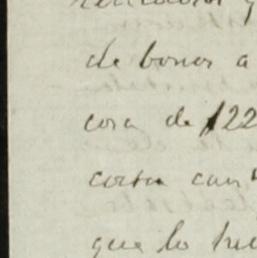 de bonos a
cosa de 122
costa can
que lo hu